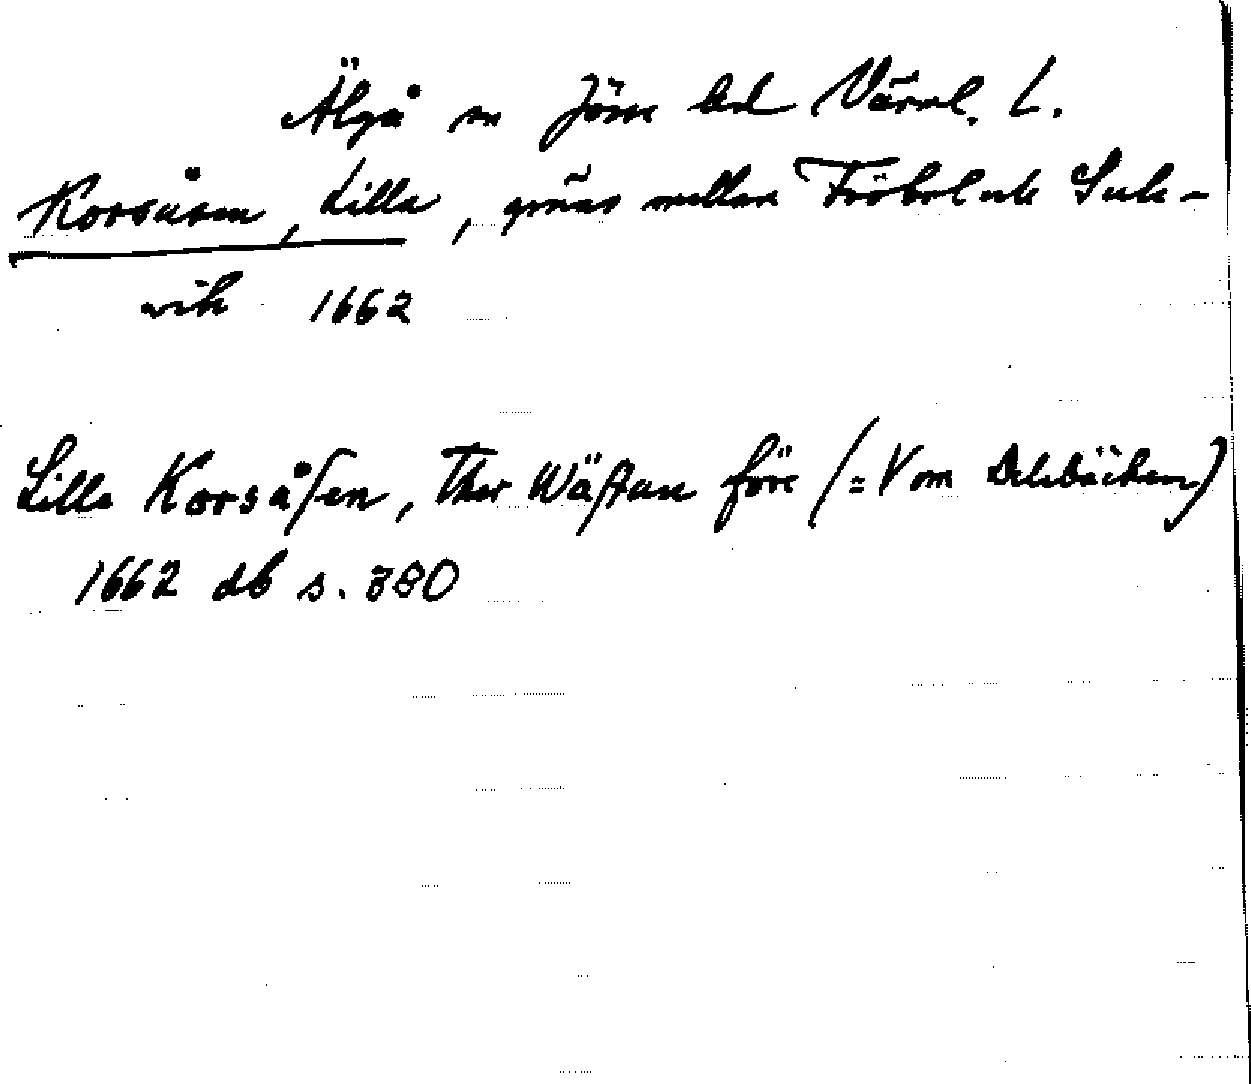 Älgå sn Jösse hd Värml. L.
Korsåsen, Lilla, gräns mellan Fröbol och Sulvik 1662
Lilla Korsåsen, Ther Wästan före (= V om Delebäcken)
1662 db s. 380